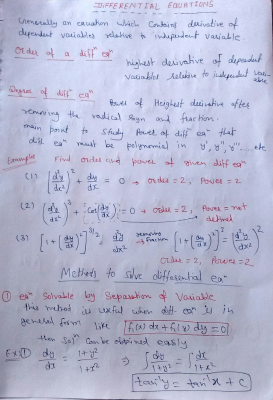 DIFFERENTIAL EQUATIONS
Generally an equation which contains derivative of
dependent variables relative to independent variable.
Order of a diffⁿ eqⁿ
highest derivative of dependent
variables relative to independent variable
Degree of diffⁿ eqⁿ
Power of Heighest derivative after
removing the radical sign and fraction.
main point to study Power of diffⁿ eqⁿ that
diff eqⁿ must be polynomial in y', y'', y''' ... etc
Examples Find order and power of given diff eqⁿ
(1) (d²y/dx²)² + dy/dx = 0 → order = 2, Power = 2
(2) (d²y/dx²)³ + [cos(dy/dx)] = 0 → order = 2, Power = not defined
(3) [1 + (dy/dx)²]^3/2 = d²y/dx² removing fraction [1 + (dy/dx)²]³ = (d²y/dx²)²
Order = 2, Power = 2
Methods to solve differential eqⁿ
① eqⁿ Solvable by Separation of Variable
this method is useful when diff. eqⁿ is in
general form like f₁(x) dx + f₂(y) dy = 0
then Solⁿ can be obtained easily
Ex: ① dy/dx = (1+y²)/(1+x²) ⇒ ∫ dy/(1+y²) = ∫ dx/(1+x²)
tan⁻¹y = tan⁻¹x + c